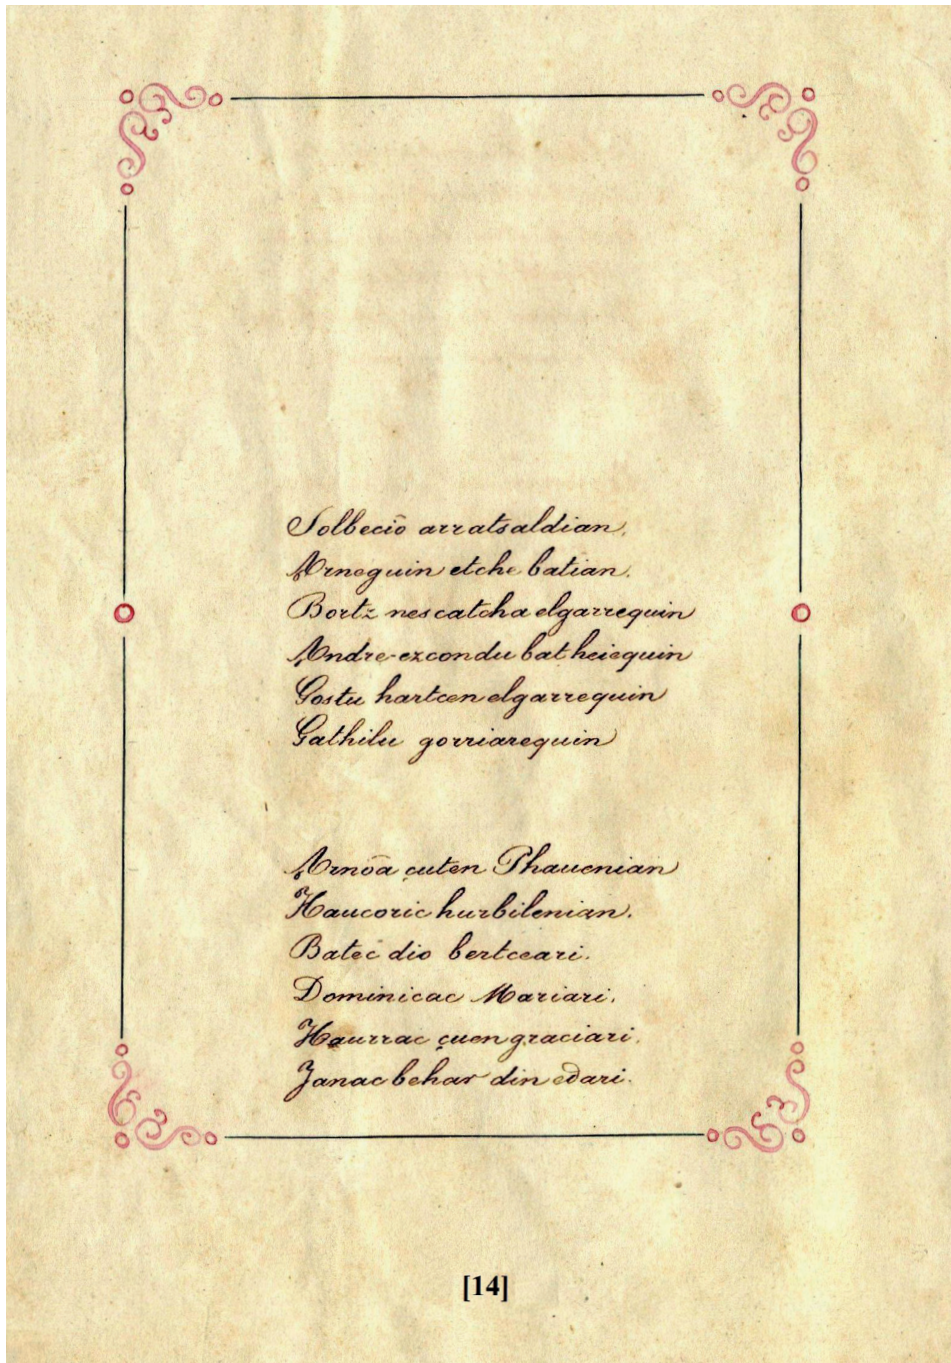 Solbeciõ arratsaldian.
Arneguin etche batian.
Bortz nescatcha elgarrequin
Andre-ezcondu bat heiequin
Gostu hartcen elgarrequin
Gathilu gorriarequin
Arnõa çuten Phauenian
Haucoric hurbilenian.
Batec dio bertceari.
Dominicac Mariari.
Haurrac çuen graciari.
Janac behar din edari.
[14]